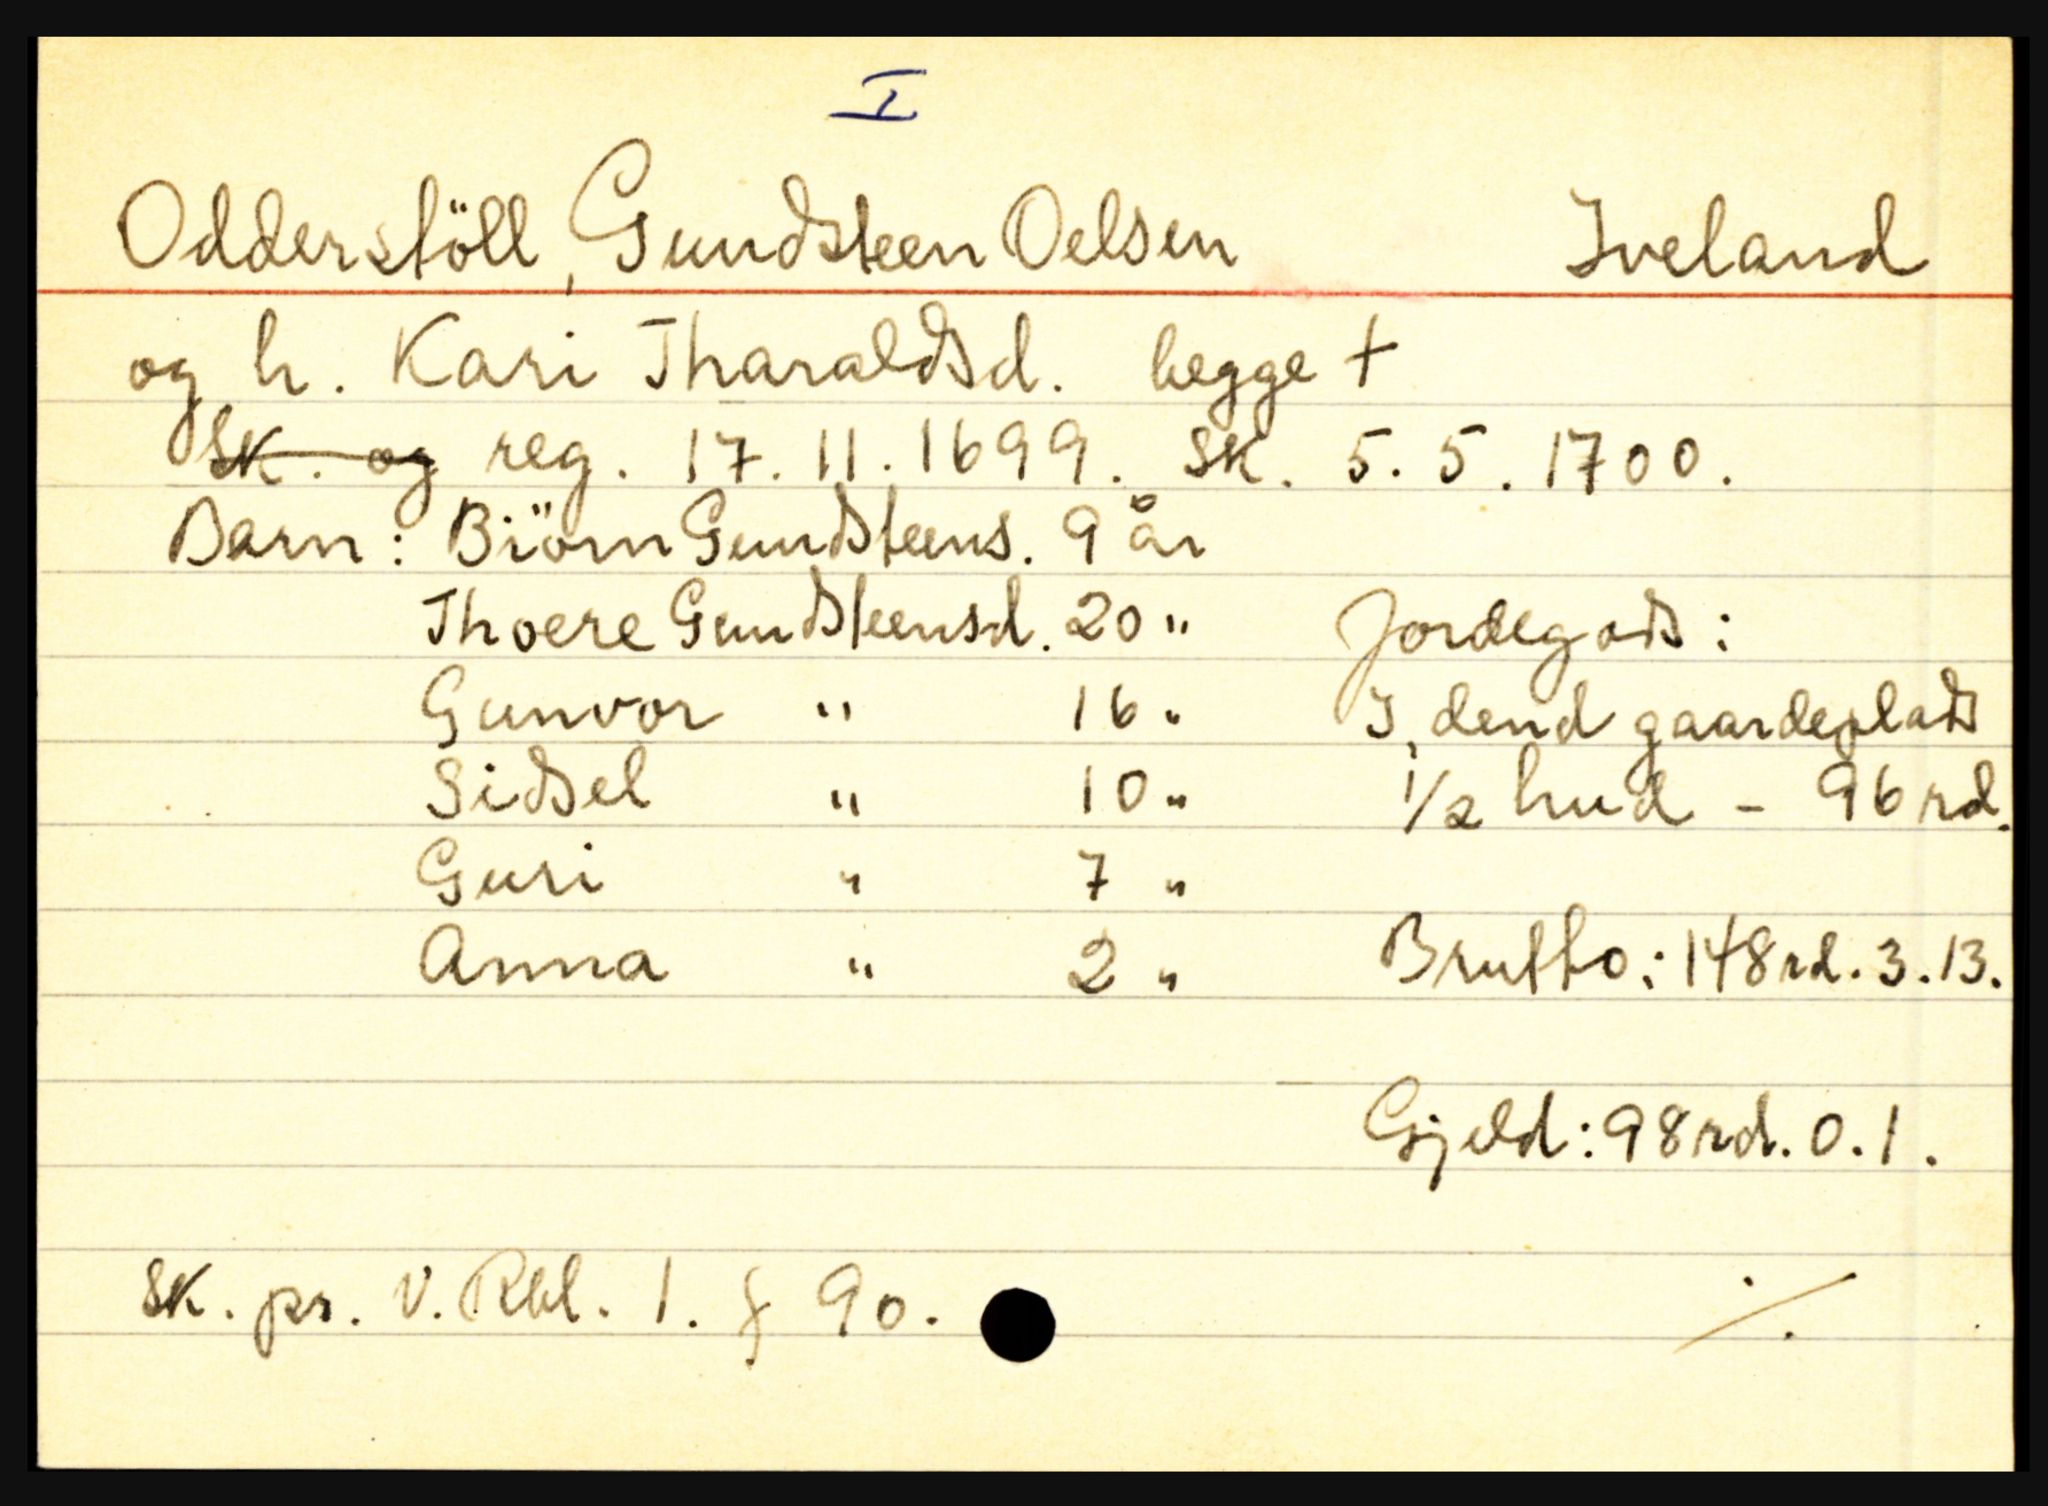 I
Odderstöll, Gundsteen Oelsen Iveland
og h. Kari Tharaldsd. begge †
Sk. og reg. 17.11.1699. Sk. 5.5.1700.
Barn: Biörn Gundsteens. 9 år
Thoere Gundsteensd. 20 " Jordegods:
Gunvor " 16 " I dend gaardeplads
Sidsel " 10 " 1/2 hud - 96 rd.
Guri " 7 "
Anna " 2 " Brutto: 148 rd. 3.13.
Gjeld: 98 rd. 0.1.
Sk. pr. V. Rbl. 1. § 90. ·/.